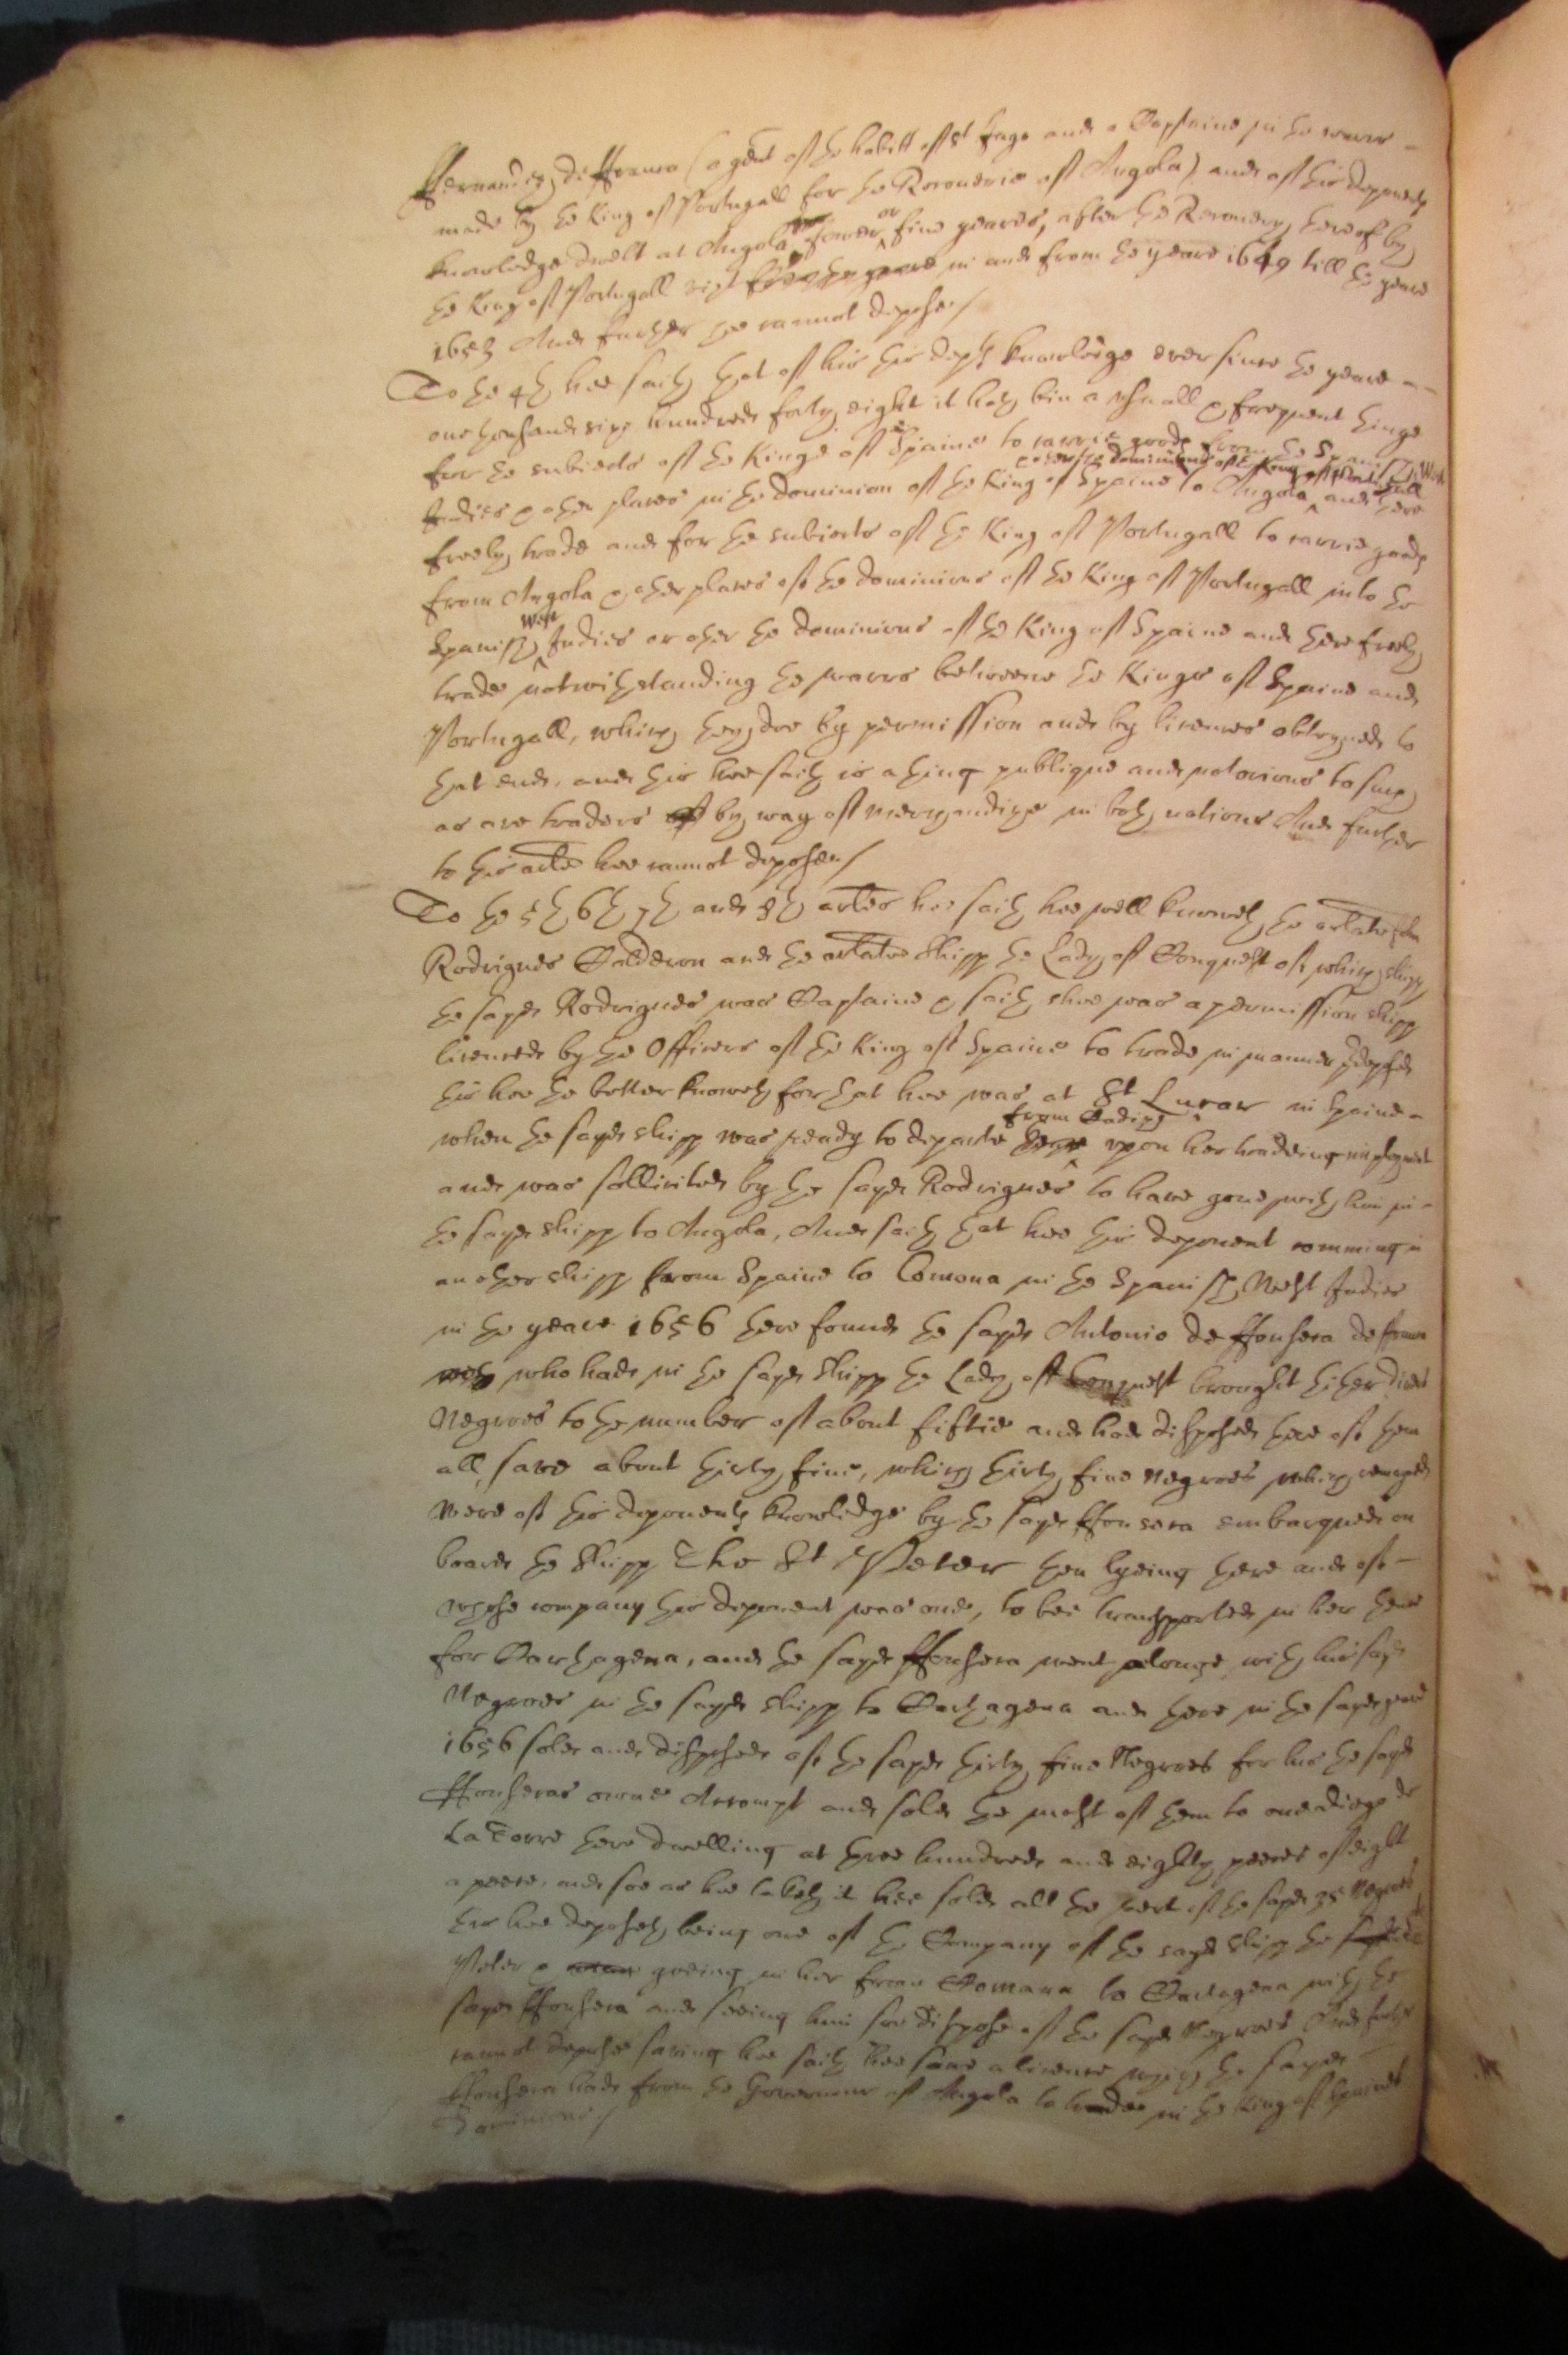 ffernandez, de ffranca (a gent of the habitt of St Jago and a Captaine in the warrs
made by the King of Portugall for the Recoverie of Angola) and of his deponents
knowledge dwelt at Angola fower or five yeares, after the Recovery thereof by
the King of Portugall vizt in and from the yeare 1649 till the yeare
1653 And further hee cannot depose./
To the 4th hee saith that of his this depts knowledge ever since the yeare
one thousand six hundred forty eight it hath bin a usuall & frequent thinge
for the subiects of the Kinge of Spaine to carrie goods from the Spanish West
Indies & other places in the dominion of the King of Spaine to Angola & other the dominions of the King of Portugall and there
freely trade and for the subiects of the King of Portugall to carrie goods
from Angola & other places of the dominions of the King of Portugall into the
Spanish West Indies or other the dominions of the King of Spaine and there freely
trade notwithstanding the warrs betweene the Kings of Spaine and
Portugall, which they doe by permission and by licences obteyned to
that end, and this hee saith is a thing publique and notorious to such
as are traders by way of merchandize in both nations And further
to this arle hee cannot depose./
To the 5th 6th 7th and 8th arles hee saith hee well knoweth the arlate John
Rodrigues Calderon and the arlate shipp the Lady of Conquest of which shipp
the sayd Rodrigues was Captaine & saith shee was a permission shipp
licenced by the Officers of the King of Spaine to trade in manner predeposed
this hee the better knoweth for that hee was at St Lucar in Spaine
when the sayd shipp was ready to departe from Cadiz upon her tradeing imployment
and was sollicited by the sayd Rodrigues to have gone with him in
the sayd shipp to Angola, And saith that hee this deponent comming in
an other shipp from Spaine to Comona in the Spanish West Indies
in the yeare 1656 there found the sayd Antonio de ffonseca de ffranca
who had in the sayd shipp the Lady of Conquest brought thither divers
Negroes to the number of about fiftie and had disposed there of them
all save about thirty five, which thirty five Negroes which remayned
were of this deponents knowledge by the sayd ffonseca embarqued on
board the shipp The St Peter then lyeing there and of
whose company this deponent was one, to bee transported in her thence
for Carthagena, and the sayd ffonseca went alonge with his sayd
Negroes in the sayd shipp to Carthagena and there in the sayd yeare
1656 sold and disposed of the sayd thirty five Negroes for his the sayd
ffonsecas owne Accompt and sold the most of them to one diego de
La Torre there dwelling at three hundred and eighty peeces of eight
a peece, and soe as hee taketh it hee sold all the rest of the sayd 35 Negroes
this hee deposeth being one of the Company of the sayd shipp the St
Peter & goeing in her from Comana to Cartagena with the
sayd ffonseca and seeing him soe dispose of the sayd Negroes And further
cannot depose saving hee saith hee sawe a licence which the sayd
ffonseca had from the Governour of Angola to trade in the King of Spaines
Dominions./